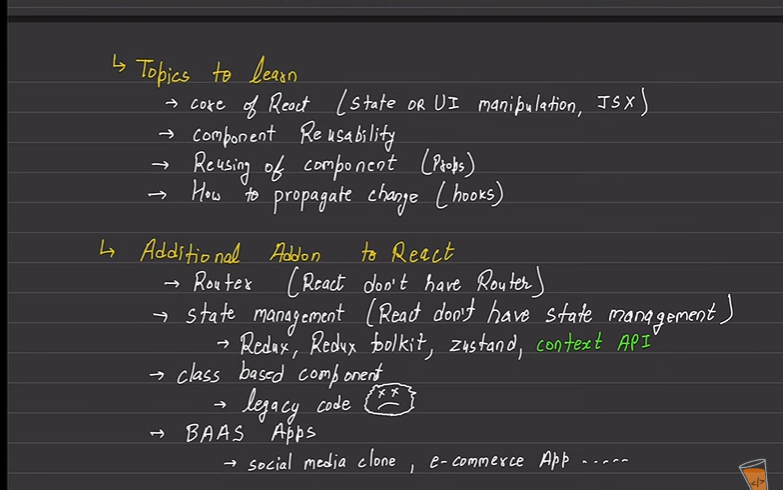 ↳ Topics to learn
→ core of React (state OR UI manipulation, JSX)
→ component Reusability
→ Reusing of component (Props)
→ How to propagate change (hooks)
↳ Additional Addon to React
→ Router (React don't have Router)
→ state management (React don't have state management)
→ Redux, Redux toolkit, zustand, context API
→ class based component
→ legacy code
→ BAAS Apps
→ social media clone, e-commerce App .....